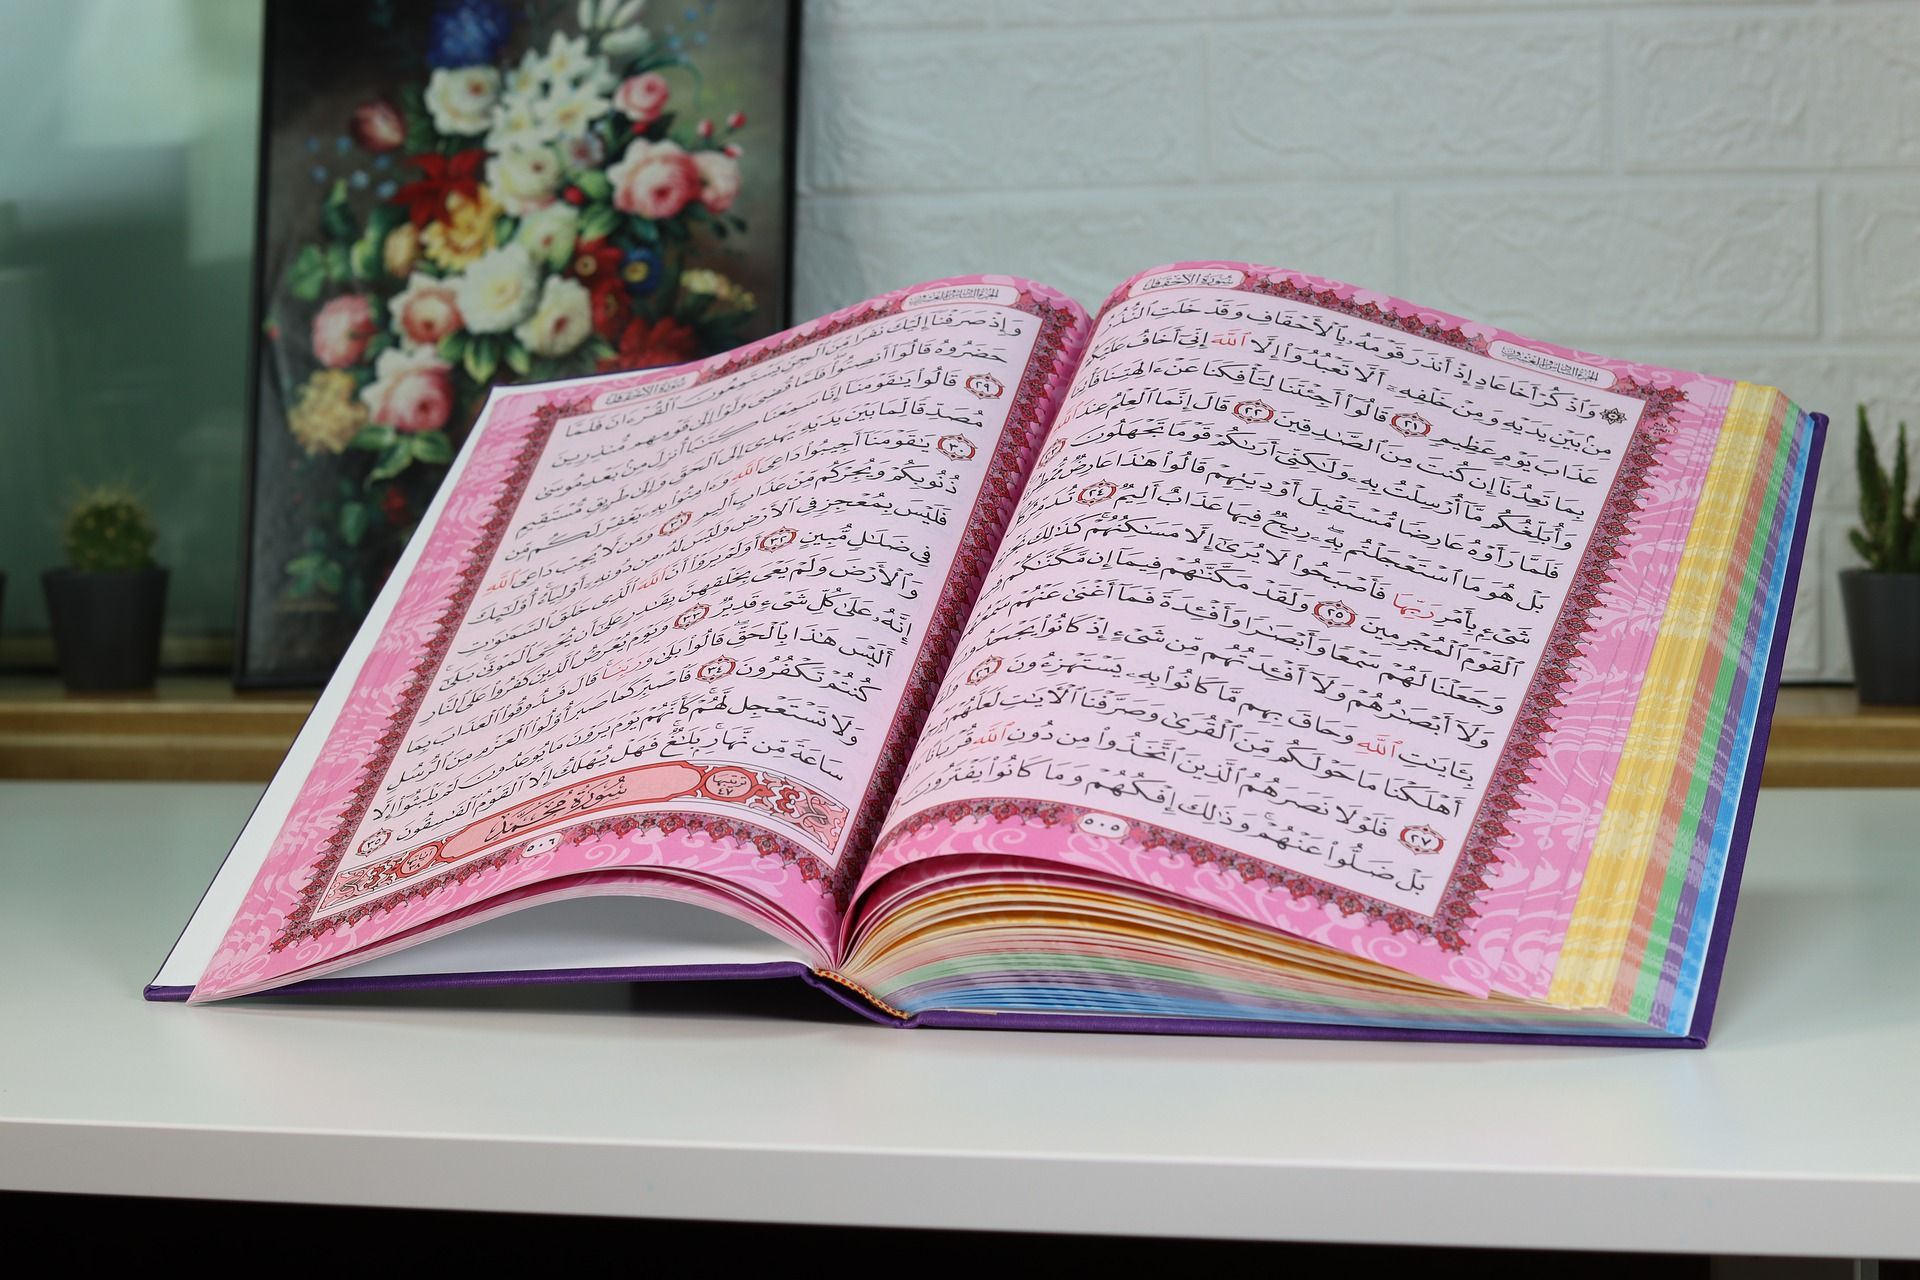 سُورَةُ الأَحْقَافِ
الجُزءُ السَّادِسُ وَالعِشرُونَ
۞ وَٱذْكُرْ أَخَا عَادٍ إِذْ أَنذَرَ قَوْمَهُۥ بِٱلْأَحْقَافِ وَقَدْ خَلَتِ ٱلنُّذُرُ
مِنۢ بَيْنِ يَدَيْهِ وَمِنْ خَلْفِهِۦٓ أَلَّا تَعْبُدُوٓا۟ إِلَّا ٱللَّهَ إِنِّىٓ أَخَافُ عَلَيْكُمْ
عَذَابَ يَوْمٍ عَظِيمٍ ٢١ قَالُوٓا۟ أَجِئْتَنَا لِتَأْفِكَنَا عَنْ ءَالِهَتِنَا فَأْتِنَا
بِمَا تَعِدُنَآ إِن كُنتَ مِنَ ٱلصَّٰدِقِينَ ٢٢ قَالَ إِنَّمَا ٱلْعِلْمُ عِندَ ٱللَّهِ
وَأُبَلِّغُكُم مَّآ أُرْسِلْتُ بِهِۦ وَلَٰكِنِّىٓ أَرَىٰكُمْ قَوْمًا تَجْهَلُونَ ٢٣
فَلَمَّا رَأَوْهُ عَارِضًا مُّسْتَقْبِلَ أَوْدِيَتِهِمْ قَالُوا۟ هَٰذَا عَارِضٌ مُّمْطِرُنَا
بَلْ هُوَ مَا ٱسْتَعْجَلْتُم بِهِۦ رِيحٌ فِيهَا عَذَابٌ أَلِيمٌ ٢٤ تُدَمِّرُ كُلَّ
شَىْءٍۭ بِأَمْرِ رَبِّهَا فَأَصْبَحُوا۟ لَا يُرَىٰٓ إِلَّا مَسَٰكِنُهُمْ كَذَٰلِكَ نَجْزِى
ٱلْقَوْمَ ٱلْمُجْرِمِينَ ٢٥ وَلَقَدْ مَكَّنَّٰهُمْ فِيمَآ إِن مَّكَّنَّٰكُمْ فِيهِ
وَجَعَلْنَا لَهُمْ سَمْعًا وَأَبْصَٰرًا وَأَفْـِٔدَةً فَمَآ أَغْنَىٰ عَنْهُمْ سَمْعُهُمْ
وَلَآ أَبْصَٰرُهُمْ وَلَآ أَفْـِٔدَتُهُم مِّن شَىْءٍ إِذْ كَانُوا۟ يَجْحَدُونَ
بِـَٔايَٰتِ ٱللَّهِ وَحَاقَ بِهِم مَّا كَانُوا۟ بِهِۦ يَسْتَهْزِءُونَ ٢٦ وَلَقَدْ
أَهْلَكْنَا مَا حَوْلَكُم مِّنَ ٱلْقُرَىٰ وَصَرَّفْنَا ٱلْـَٔايَٰتِ لَعَلَّهُمْ يَرْجِعُونَ
٢٧ فَلَوْلَا نَصَرَهُمُ ٱلَّذِينَ ٱتَّخَذُوا۟ مِن دُونِ ٱللَّهِ قُرْبَانًا
بَلْ ضَلُّوا۟ عَنْهُمْ وَذَٰلِكَ إِفْكُهُمْ وَمَا كَانُوا۟ يَفْتَرُونَ
٥٠٥
الجُزءُ السَّادِسُ وَالعِشرُونَ
سُورَةُ الأَحْقَافِ
وَإِذْ صَرَفْنَآ إِلَيْكَ نَفَرًا مِّنَ ٱلْجِنِّ يَسْتَمِعُونَ ٱلْقُرْءَانَ فَلَمَّا
حَضَرُوهُ قَالُوٓا۟ أَنصِتُوا۟ فَلَمَّا قُضِىَ وَلَّوْا۟ إِلَىٰ قَوْمِهِم مُّنذِرِينَ
٢٩ قَالُوا۟ يَٰقَوْمَنَآ إِنَّا سَمِعْنَا كِتَٰبًا أُنزِلَ مِنۢ بَعْدِ مُوسَىٰ
مُصَدِّقًا لِّمَا بَيْنَ يَدَيْهِ يَهْدِىٓ إِلَى ٱلْحَقِّ وَإِلَىٰ طَرِيقٍ مُّسْتَقِيمٍ
٣٠ يَٰقَوْمَنَآ أَجِيبُوا۟ دَاعِىَ ٱللَّهِ وَءَامِنُوا۟ بِهِۦ يَغْفِرْ لَكُم مِّن
ذُنُوبِكُمْ وَيُجِرْكُم مِّنْ عَذَابٍ أَلِيمٍ ٣١ وَمَن لَّا يُجِبْ دَاعِىَ ٱللَّهِ
فَلَيْسَ بِمُعْجِزٍ فِى ٱلْأَرْضِ وَلَيْسَ لَهُۥ مِن دُونِهِۦٓ أَوْلِيَآءُ أُو۟لَٰٓئِكَ
فِى ضَلَٰلٍ مُّبِينٍ ٣٢ أَوَلَمْ يَرَوْا۟ أَنَّ ٱللَّهَ ٱلَّذِى خَلَقَ ٱلسَّمَٰوَٰتِ
وَٱلْأَرْضَ وَلَمْ يَعْىَ بِخَلْقِهِنَّ بِقَٰدِرٍ عَلَىٰٓ أَن يُحْـِۧىَ ٱلْمَوْتَىٰ بَلَىٰٓ
إِنَّهُۥ عَلَىٰ كُلِّ شَىْءٍ قَدِيرٌ ٣٣ وَيَوْمَ يُعْرَضُ ٱلَّذِينَ كَفَرُوا۟ عَلَى ٱلنَّارِ
أَلَيْسَ هَٰذَا بِٱلْحَقِّ قَالُوا۟ بَلَىٰ وَرَبِّنَا قَالَ فَذُوقُوا۟ ٱلْعَذَابَ بِمَا
كُنتُمْ تَكْفُرُونَ ٣٤ فَٱصْبِرْ كَمَا صَبَرَ أُو۟لُوا۟ ٱلْعَزْمِ مِنَ ٱلرُّسُلِ
وَلَا تَسْتَعْجِل لَّهُمْ كَأَنَّهُمْ يَوْمَ يَرَوْنَ مَا يُوعَدُونَ لَمْ يَلْبَثُوٓا۟ إِلَّا
سَاعَةً مِّن نَّهَارٍۭ بَلَٰغٌ فَهَلْ يُهْلَكُ إِلَّا ٱلْقَوْمُ ٱلْفَٰسِقُونَ ٣٥
ترتيبها ٤٧ سُورَةُ مُحَمَّدٍ آياتها ٣٨
٥٠٦